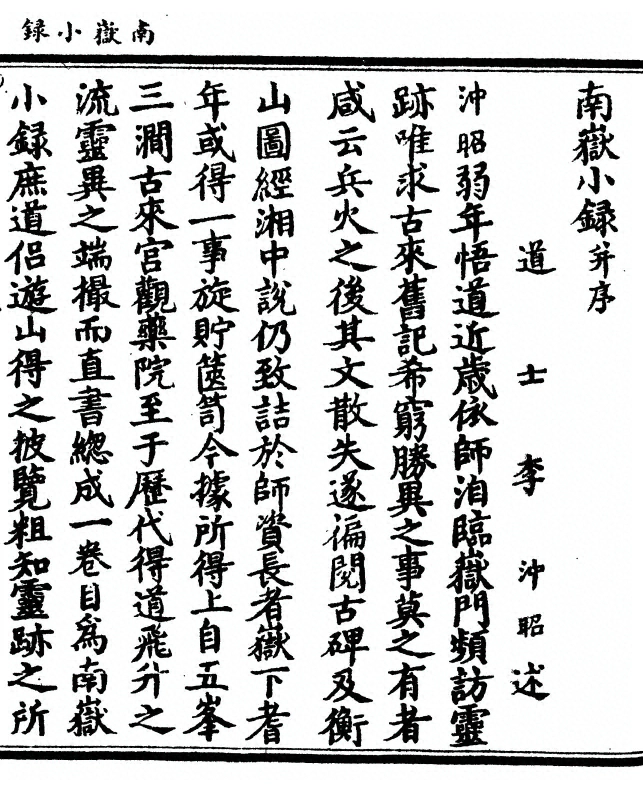 南嶽小録
南嶽小録并序
道士李沖昭述
沖昭弱年悟道近歲依師洎臨嶽門頻訪靈
跡唯求古來舊記希窮勝異之事莫之有者
咸云兵火之後其文散失遂徧閱古碑及衡
山圖經湘中說仍致詰於師資長者嶽下耆
年或得一事旋貯篋笥今據所得上自五峯
三澗古來宮觀藥院至于歷代得道飛升之
流靈異之端撮而直書總成一卷目爲南嶽
小録庶道侶遊山得之披覽粗知靈跡之所